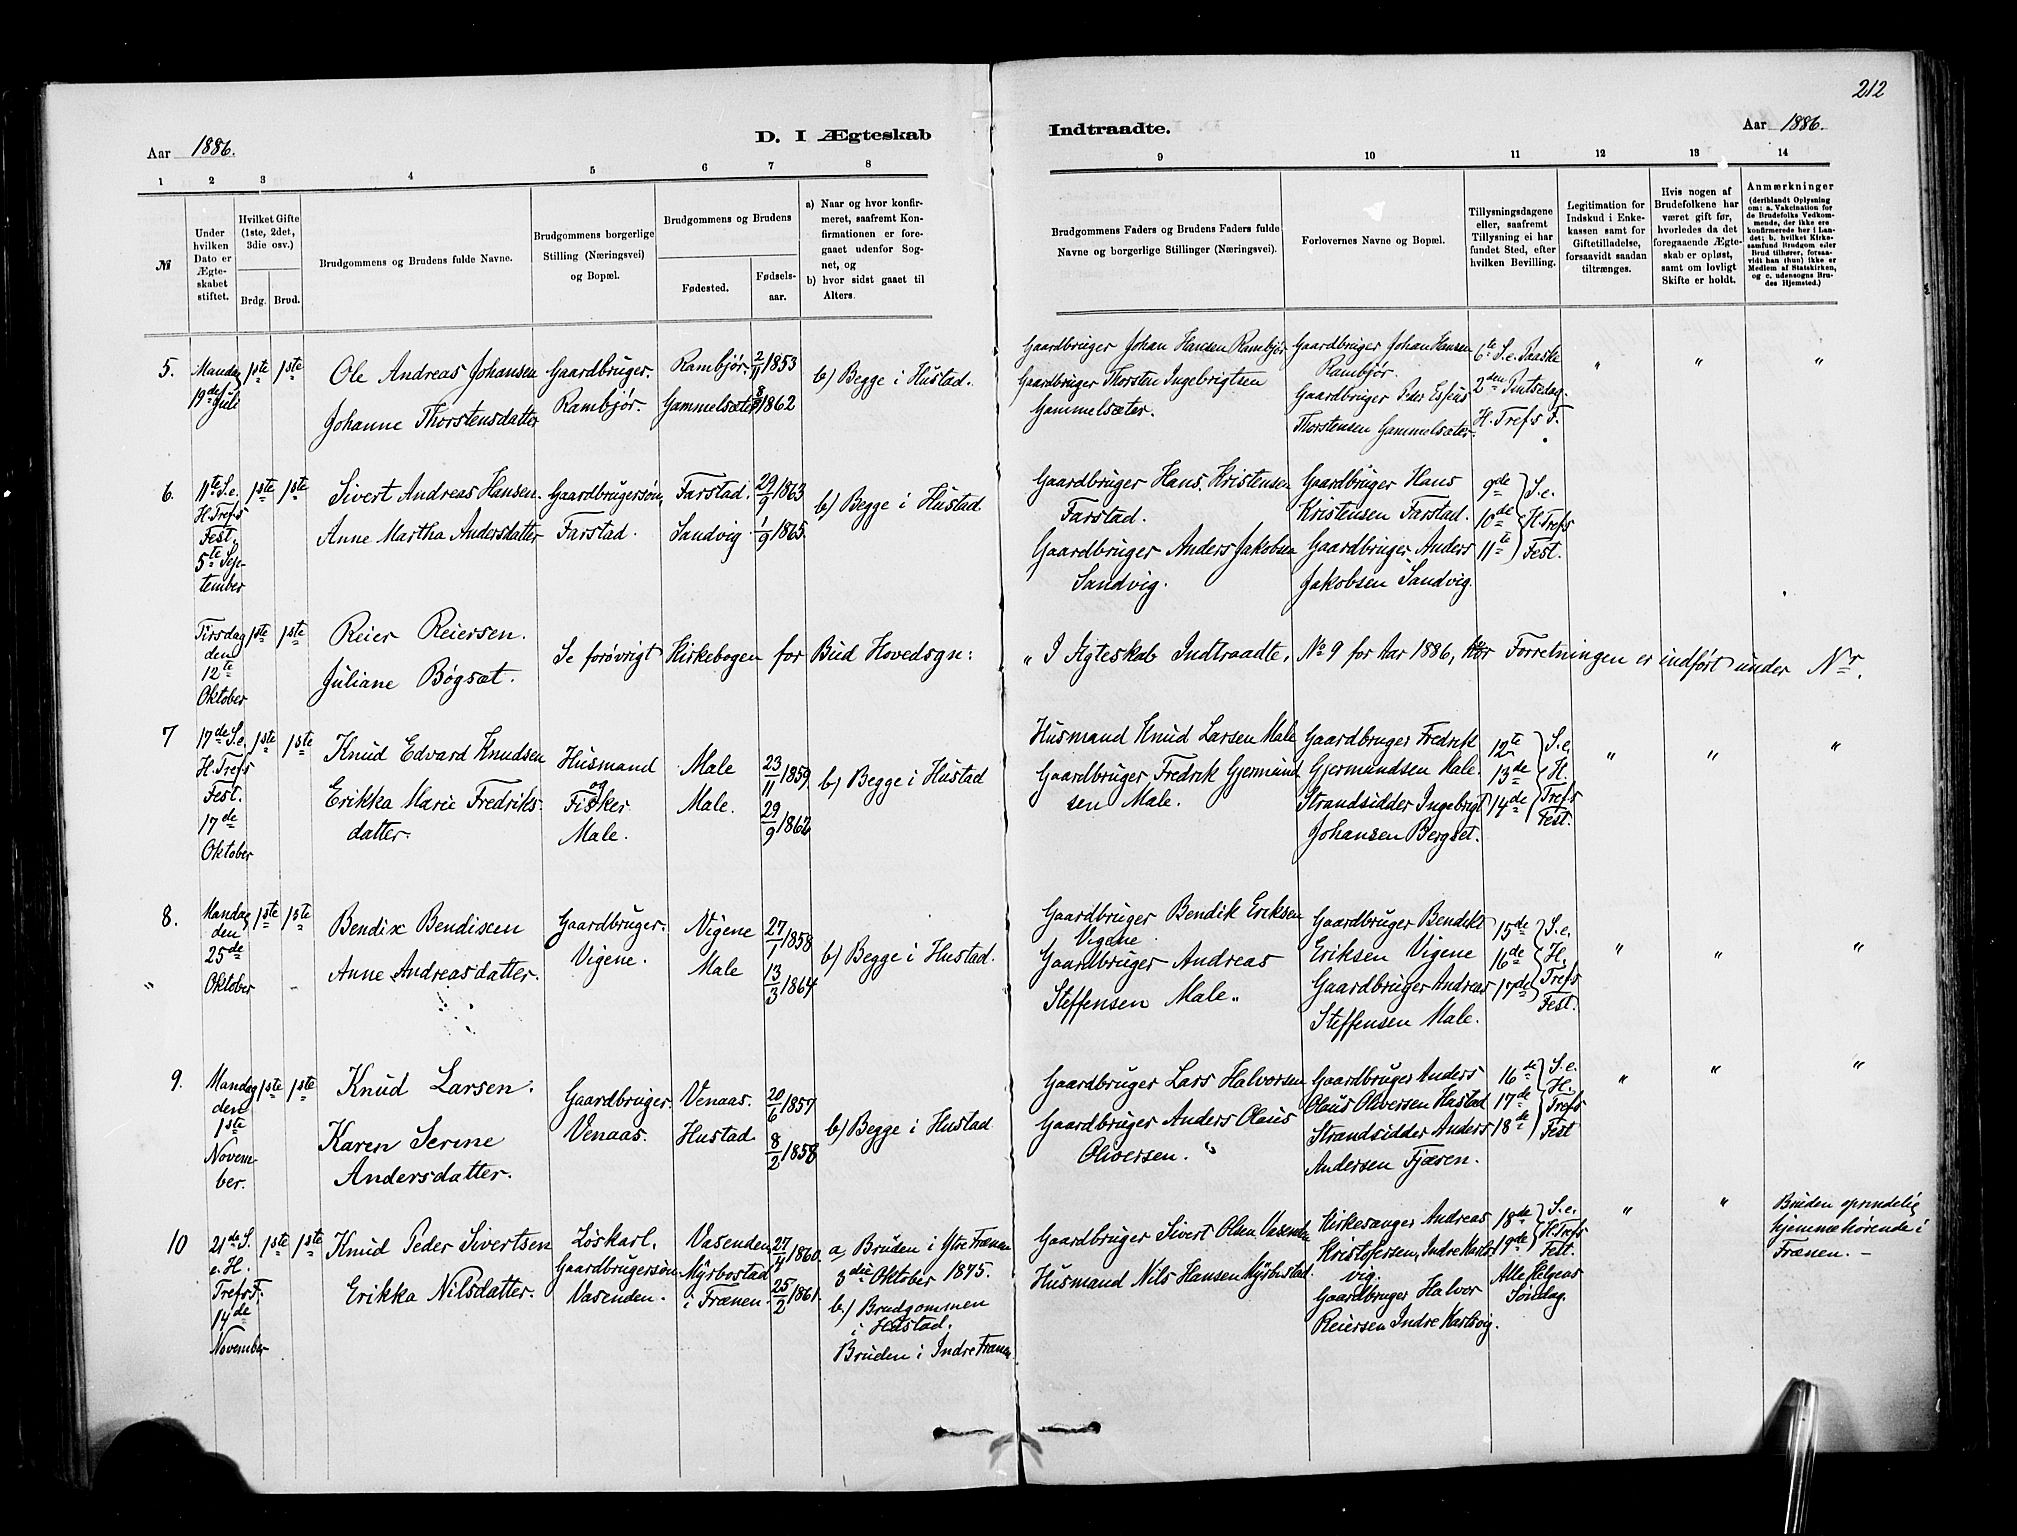 212
Aar 1886.
D. I Ægteskab
Indtraadte.
Aar 1886.
1 2 3 4 5 6 7 8 9 10 11 12 13 14
№
Under
hvilken
Dato er
Ægte-
skabet
stiftet.
Hvilket Gifte
(1ste, 2det,
3die osv.)
Brdg. Brud.
Brudgommens og Brudens fulde Navne.
Brudgommens borgerlige
Stilling (Næringsvei)
og Bopæl.
Brudgommens og Brudens
Fødested.
Fødsels-
aar.
a) Naar og hvor konfir-
meret, saafremt Kon-
firmationen er fore-
gaaet udenfor Sog-
net, og
b) hvor sidst gaaet til
Alters.
Brudgommens Faders og Brudens Faders fulde
Navne og borgerlige Stillinger (Næringsvei).
Forlovernes Navne og Bopæl.
Tillysningsdagene
eller, saafremt
Tillysning ei har
fundet Sted, efter
hvilken Bevilling.
Legitimation for
Indskud i Enke-
kassen samt for
Giftetilladelse,
forsaavidt saadan
tiltrænges.
Hvis nogen af
Brudefolkene har
været gift før,
hvorledes da det
foregaaende Ægte-
skab er opløst,
samt om lovligt
Skifte er holdt.
Anmærkninger
(deriblandt Oplysning
om: a. Vakcination for
de Brudefolks Vedkom-
mende, der ikke ere
konfirmerede her i Lan-
det; b. hvilket Kirke-
samfund Brudgom eller
Brud tilhører, forsaa-
vidt han (hun) ikke er
Medlem af Statskirken,
og c. udensogns Bru-
des Hjemsted.)
5.
Mandag
19de Juli
1ste 1ste
Ole Andreas Johansen
Johanne Thorstensdatter
Gaardbruger.
Rambjør.
Rambjør.
Gammelsæter
2/11 1853
8/8 1862
b) Begge i Hustad.
Gaardbruger Johan Hansen Rambjør
Gaardbruger Thorsten Ingebrigtsen
Gammelsæter.
Gaardbruger Johan Hansen
Rambjør.
Gaardbruger Peder
Thorstensen Gammelsæter.
6te S. e. Paaske
2den Pintsedag.
H. Trefs F.
" " "
6.
11te S. e.
H. Trefs
Fest,
5te Sep-
tember
1ste 1ste
Sivert Andreas Hansen.
Anne Martha Andersdatter
Gaardbrugersøn,
Farstad.
Farstad.
Sandvig.
29/9 1863
1/9 1865.
b) Begge i Hustad.
Gaardbruger Hans Kristensen
Farstad.
Gaardbruger Anders Jakobsen
Sandvig.
Gaardbruger Hans
Kristensen Farstad.
Gaardbruger Anders
Jakobsen Sandvig.
9de
10de
11te
S. e.
H. Trefs
Fest.
Tirsdag
den
12te
Oktober
1ste 1ste
Reier Reiersen.
Juliane Bøgsæt.
Se forøvrigt Kirkebogen for Bud Hovedsgn:
"I Ægteskab Indtraadte, № 9 for Aar 1886, hvor Forretningen er indført under Nr.
7
17de S. e.
H. Trefs
Fest.
17de
Oktober
1ste 1ste
Knud Edvard Knudsen
Erikka Marie Fredriks-
datter.
Husmand
og
Fisker
Male.
Male
Male.
23/11 1859
29/9 1862
b) Begge i Hustad
Husmand Knud Larsen Male
Gaardbruger Fredrik Gjermund
sen Male.
Gaardbruger Fredrik
Gjermundsen Male.
Strandsidder Ingebrigt
Johansen Bergset.
12te
13de
14de
S. e.
H.
Trefs
Fest.
" " "
8.
Mandag
den
25de
Oktober
1ste 1ste
Bendix Bendixen
Anne Andreasdatter.
Gaardbruger.
Vigene.
Vigene
Male
27/1 1858
13/3 1864
b) Begge i Hustad.
Gaardbruger Bendik Eriksen
Vigene
Gaardbruger Andreas
Steffensen Male.
Gaardbruger Bendikt
Eriksen Vigene
Gaardbruger Andreas
Steffensen Male.
15de
16de
17de
S. e.
H.
Trefs
Fest.
" " "
9.
Mandag
den
1ste
Novem-
ber.
1ste 1ste
Knud Larsen.
Karen Serine
Andersdatter.
Gaardbruger
Venaas.
Venaas.
Hustad.
20/6 1857
8/2 1858
b) Begge i Hustad
Gaardbruger Lars Halvorsen
Gaardbruger Anders Olaus
Oliversen. "
Gaardbruger Anders
Olaus Oliversen Hustad
Strandsidder Anders
Andersen Fjæren.
16de
17de
18de
S. e.
H.
Trefs
Fest
" " "
10
21de S.
e. H.
Trefs F.
14de
November
1ste 1ste
Knud Peder Sivertsen
Erikka Nilsdatter.
Løskarl.
Gaardbrugersøn
Vasenden.
Vasenden
Myrbostad
i Frænen.
27/4 1860.
25/2 1861.
a) Bruden i Ytre Frænen
3die Oktober 1875.
b) Brudgommen
i Hustad.
Bruden i Indre Frænen
Gaardbruger Sivert Olsen Vasenden
Husmand Nils Hansen Myrbustad.
Kirkesanger Andreas
Kristofersen, Indre Harls
vig.
Gaardbruger Halvor
Reiersen Indre Harlsvig.
18de
19de
S. e.
H. Trefs
Fest.
Alle Helgens
Søndag.
" "
Bruden oprindelig
hjemmehørende i
Frænen. —